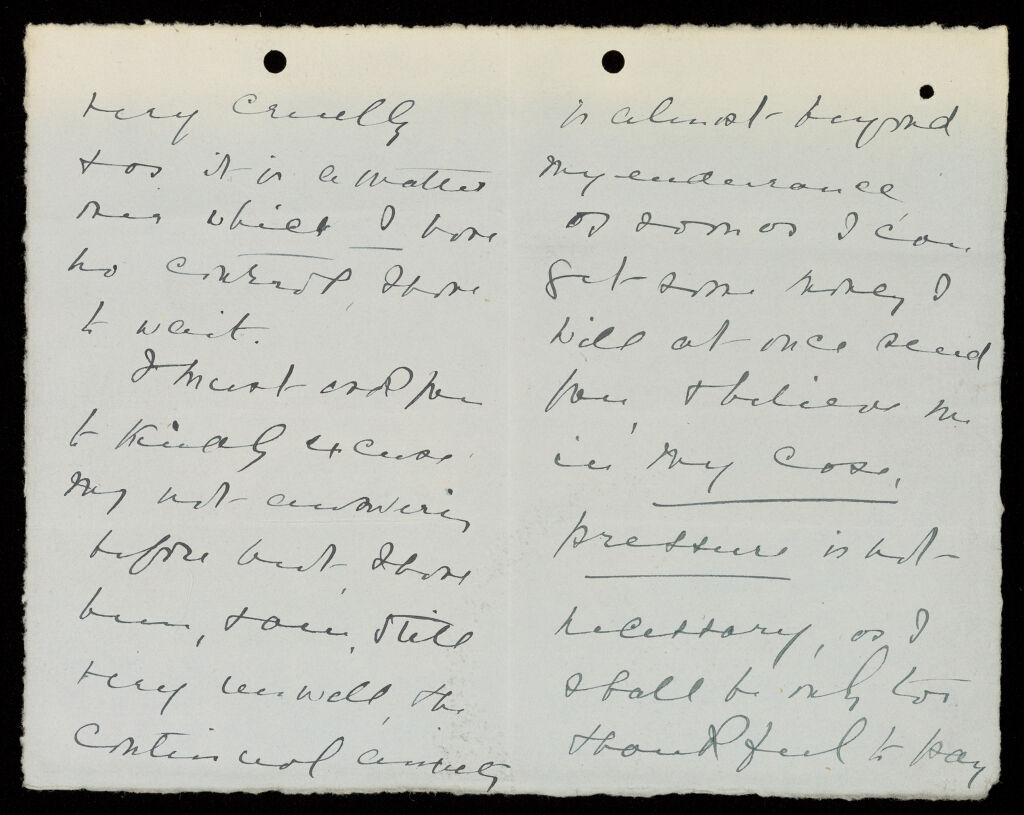 very cruelly
& as it is a matter
over which I have
no control, I have
to wait.
I must ask you
to kindly excuse
my not answering
before but, I have
been, & am, still
very unwell, the
continual anxiety
is almost beyond
my endurance,
as soon as I can
get some money I
will at once send
you, & believe me
in my case,
pressure is not
necessary, as I
shall be only too
thankful to pay